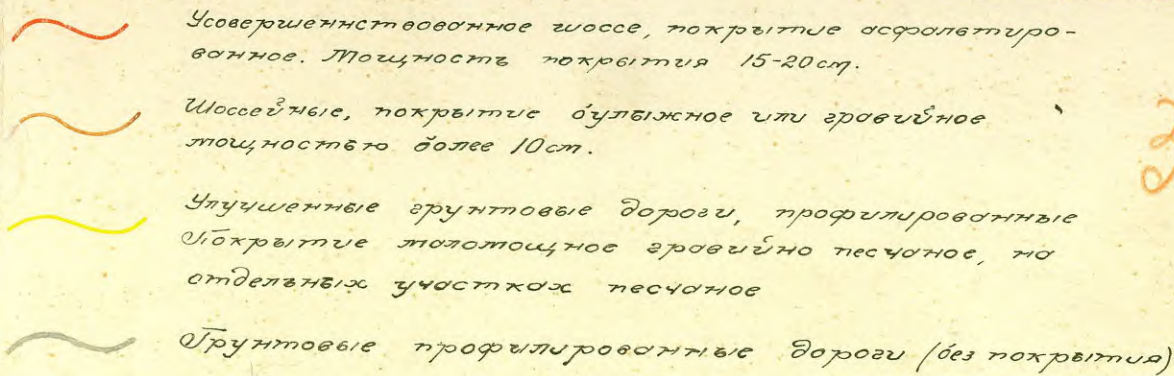 Усовершенствованное шоссе, покрытие асфальтиро-
ванное. Мощность покрытия 15-20см.
Шоссейные, покрытие булыжное или гравийное
мощностью более 10см.
Улучшенные грунтовые дороги, профилированные
Покрытие маломощное гравийно песчаное, на
отдельных участках песчаное
Грунтовые профилированные дороги (без покрытия)